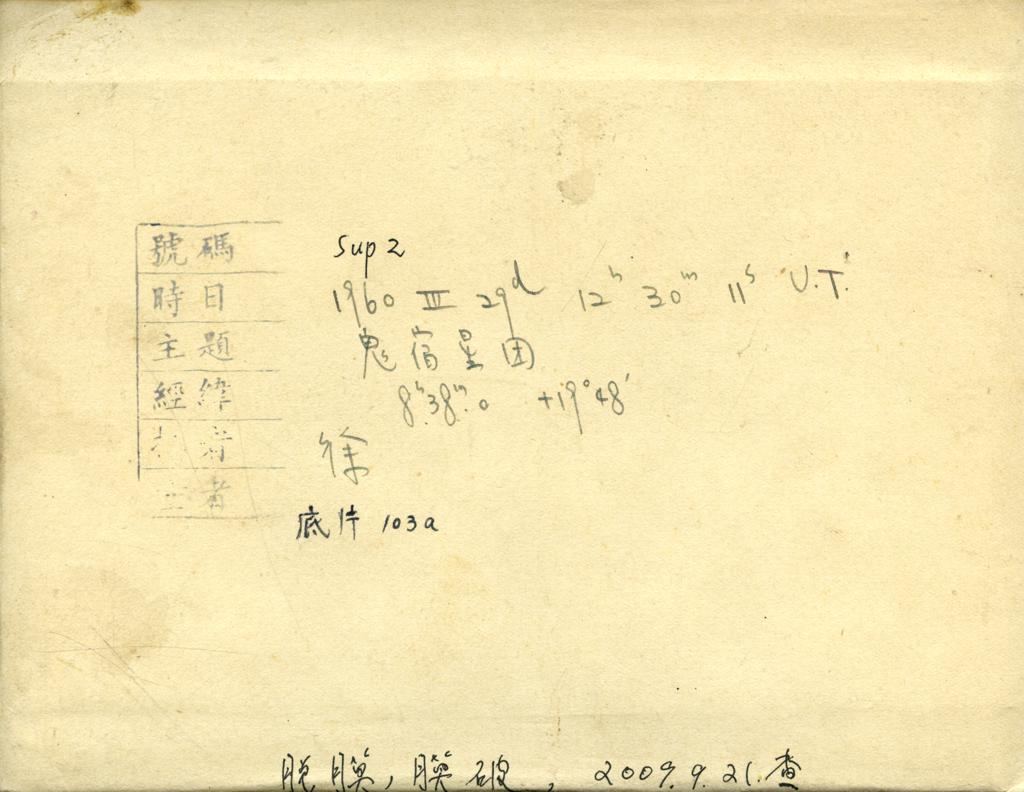 號碼 Sup 2
時日 1960 III 29d 12h 30m 11s U.T.
主題 鬼宿星团
經緯 8h38m.0 +19°48'
徐
者
底片 103a
脱膜,膜破, 2009.9.21.查